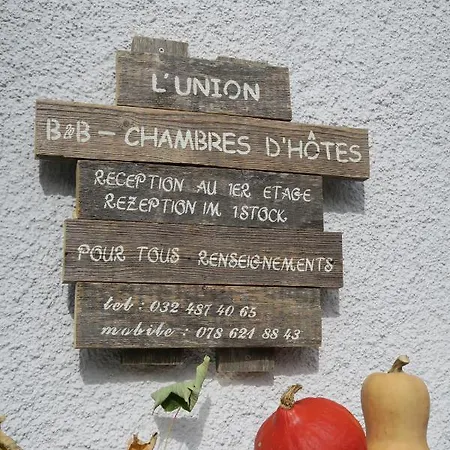 L'UNION
B&B – CHAMBRES D'HÔTES
RECEPTION AU 1ER ETAGE
REZEPTION IM 1STOCK
POUR TOUS RENSEIGNEMENTS
tel : 032 487 40 65
mobile : 078 621 88 43